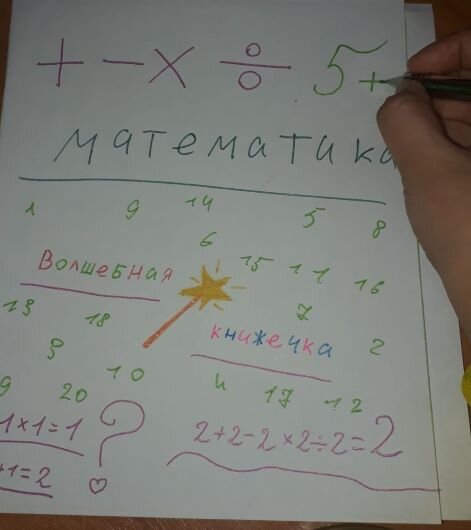 + − × ÷ 5+
математика
1 9 14 5 8
6 15 11 16
Волшебная
7
13 18 книжечка 2
9 10
9 20 4 17 12
1×1=1 ? 2+2-2×2÷2=2
+1=2